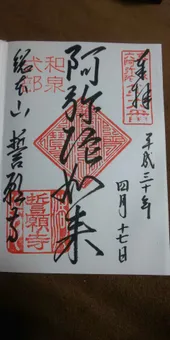 奉拝
平成三十年
四月十七日
阿弥陀如来
和泉
式部
誓願寺
総本山 誓願寺